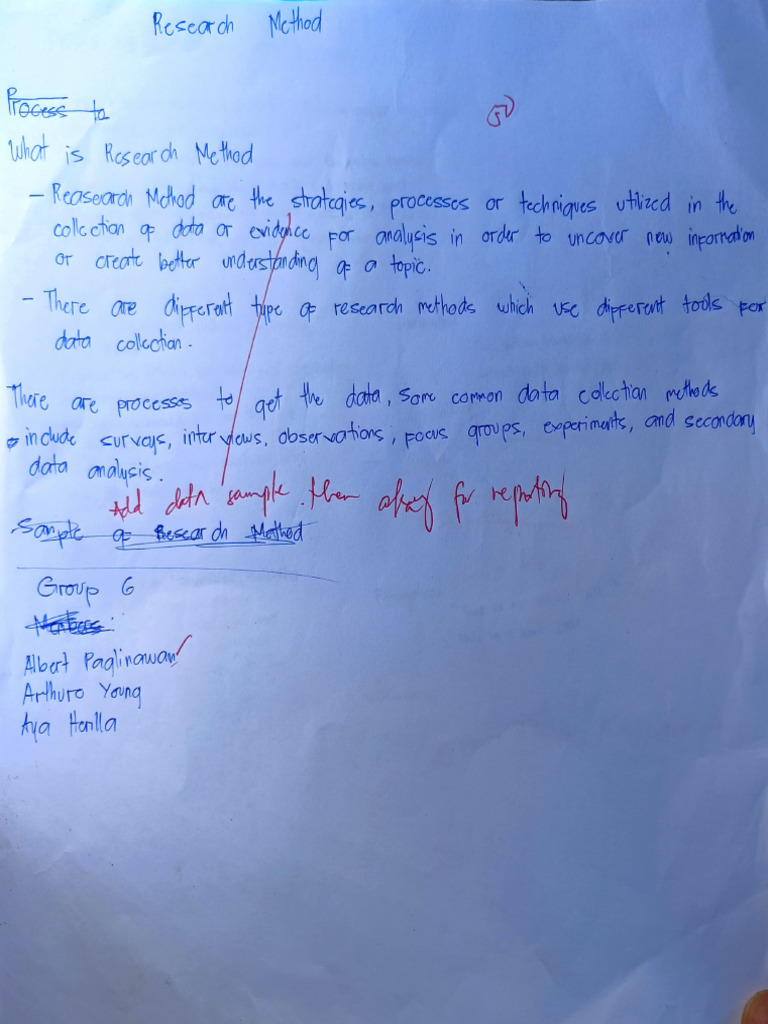 Research Method
Process to
What is Research Method
- Reaserarch Method are the strategies, processes or techniques utilized in the
collection of data or evidence for analysis in order to uncover new information
or create better understanding of a topic.
- There are different type of research methods which use different tools for
data collection.
There are processes to get the data, some common data collection methods
include surveys, interviews, observations, focus groups, experiments, and secondary
data analysis.
Add data sample. then okay for reporting
Sample of Research Method
Group 6
Members:
Albert Paglinawan
Arthuro Young
Aya Herilla